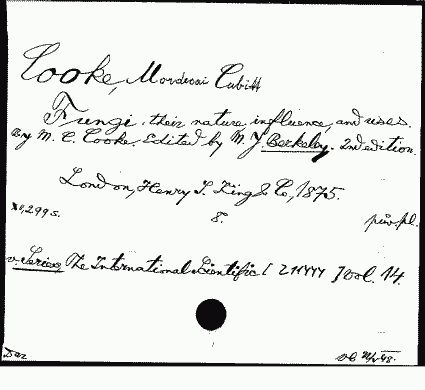 Cooke, Mordecai Cubitt
Fungi: their nature, influence, and uses.
By M. C. Cooke. Edited by M. J. Berkeley. 2nd edition.
London, Henry S. King & Co, 1875.
XII, 299 s. 8.
v. Series The International Scientific [ ] Vol. 14.